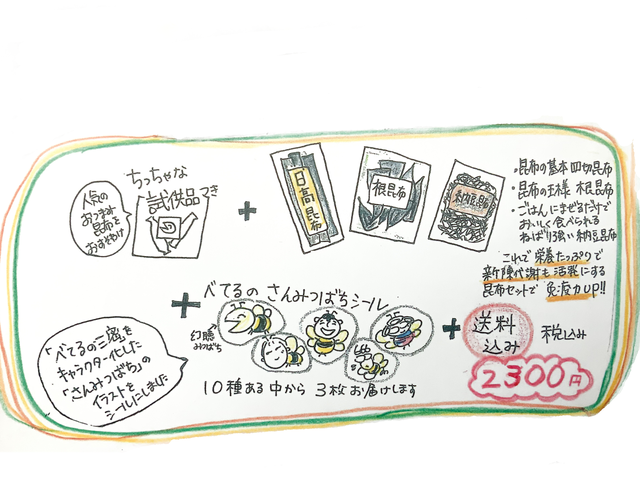 人気の
おつまみ
昆布を
おすそわけ
ちっちゃな
試供品つき
+
日高昆布
根昆布
納豆昆布
・昆布の基本 四切昆布
・昆布の王様 根昆布
・ごはんにまぜるだけで
おいしく食べられる
ねばり強い納豆昆布
これで栄養たっぷりで
新陳代謝も活発にする
昆布セットで 免疫力UP!!
+
べてるの さんみつばちシール
幻聴
みつばち
10種ある中から 3枚お届けします
「べてるの三密」を
キャラクター化した
「さんみつばち」の
イラストを
シールにしました
+
送料
込み
税込み
2300円